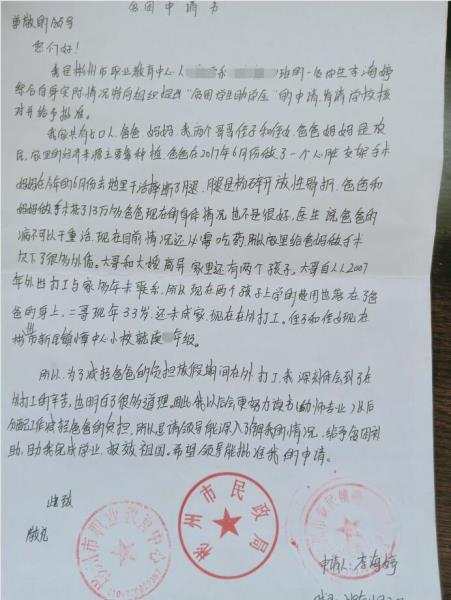 贫困申请书
尊敬的领导
您们好！
我是彬州市职业教育中心 系 班的一名学生李海婷
综合自身实际情况特向组织提出“贫困学生助学金”的申请，肯请学校核
对并给予批准。
我家共有七口人，爸爸 妈妈，我两个哥哥侄子和侄女，爸爸妈妈是农
民，家里的经济来源主要靠种植，爸爸在2017年6月份做了一个心脏支架手术
妈妈在今年的6月份去地里干活摔断了腿，腿是粉碎开放性骨折，爸爸和
妈妈做手术花了13万多，爸爸现在的身体情况也不是很好，医生说爸爸的
病不可以干重活，现在目前情况还必需吃药，所以家里给爸妈做手术
欠下了很多外债。大哥和大嫂离异，家里还有两个孩子。大哥自从2007
年外出打工与家多年未联系，所以现在两个孩子上学的费用也落在了爸
爸的身上，二哥现年33岁，还未成家，现在在外打工。侄子和侄女现在
彬州市新民镇 中心小校就读 年级。
所以，为了减轻爸爸的负担放假期间在外打工，我深刻体会到了在
外打工的辛苦，也明白了很多道理。因此，我以后会更努力读书（幼师专业）以后
分配工作减轻爸爸的负担，所以恳请领导能深入了解我的情况，给予贫困补
助，助我完成学业，报效祖国。希望领导能批准我的申请。
此致
敬礼
彬州市职业教育中心
彬州市民政局
申请人：李海婷